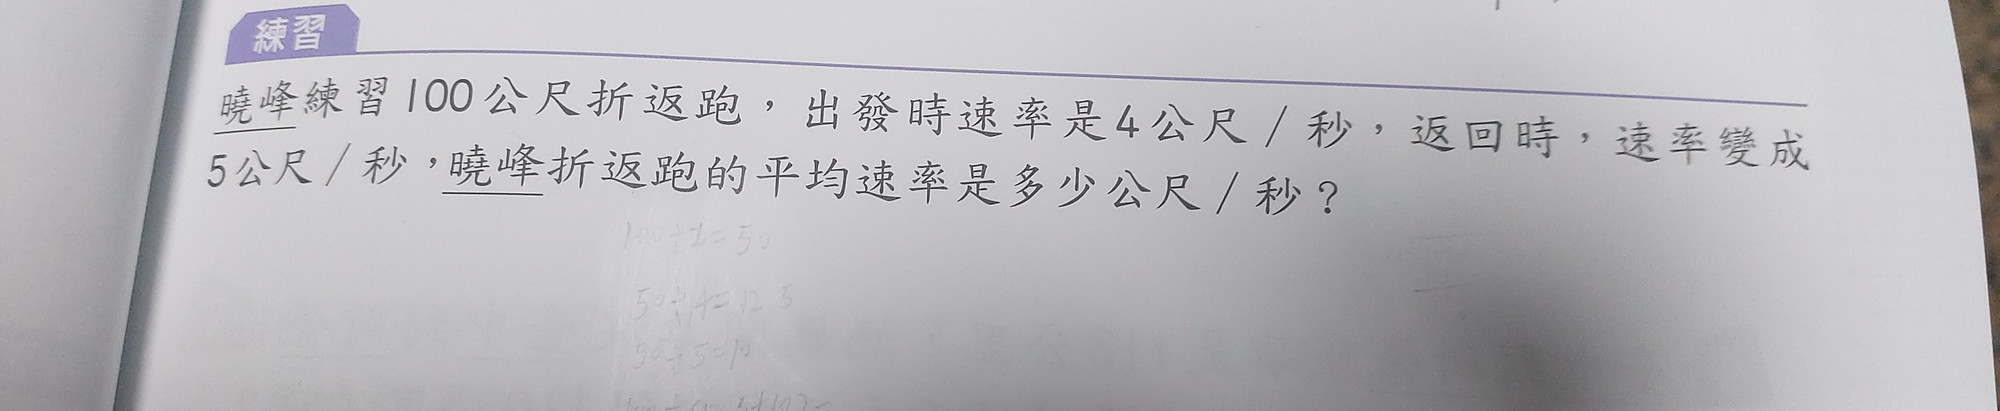 練習
曉峰練習100公尺折返跑，出發時速率是4公尺／秒，返回時，速率變成
5公尺／秒，曉峰折返跑的平均速率是多少公尺／秒？
100÷2=50
50÷4=12.5
50÷5=10